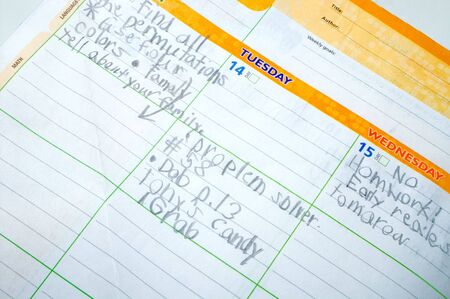 LANGUAGE
MATH
Title:
Author:
Weekly goals:
Find all
*the permutations
* use four
colors. • Family
Tell about your family.
TUESDAY
14
• problem solver.
#58
• Dab p.13
1 Grab
candy
WEDNESDAY
15
No
Homwork!
Early
tomarow